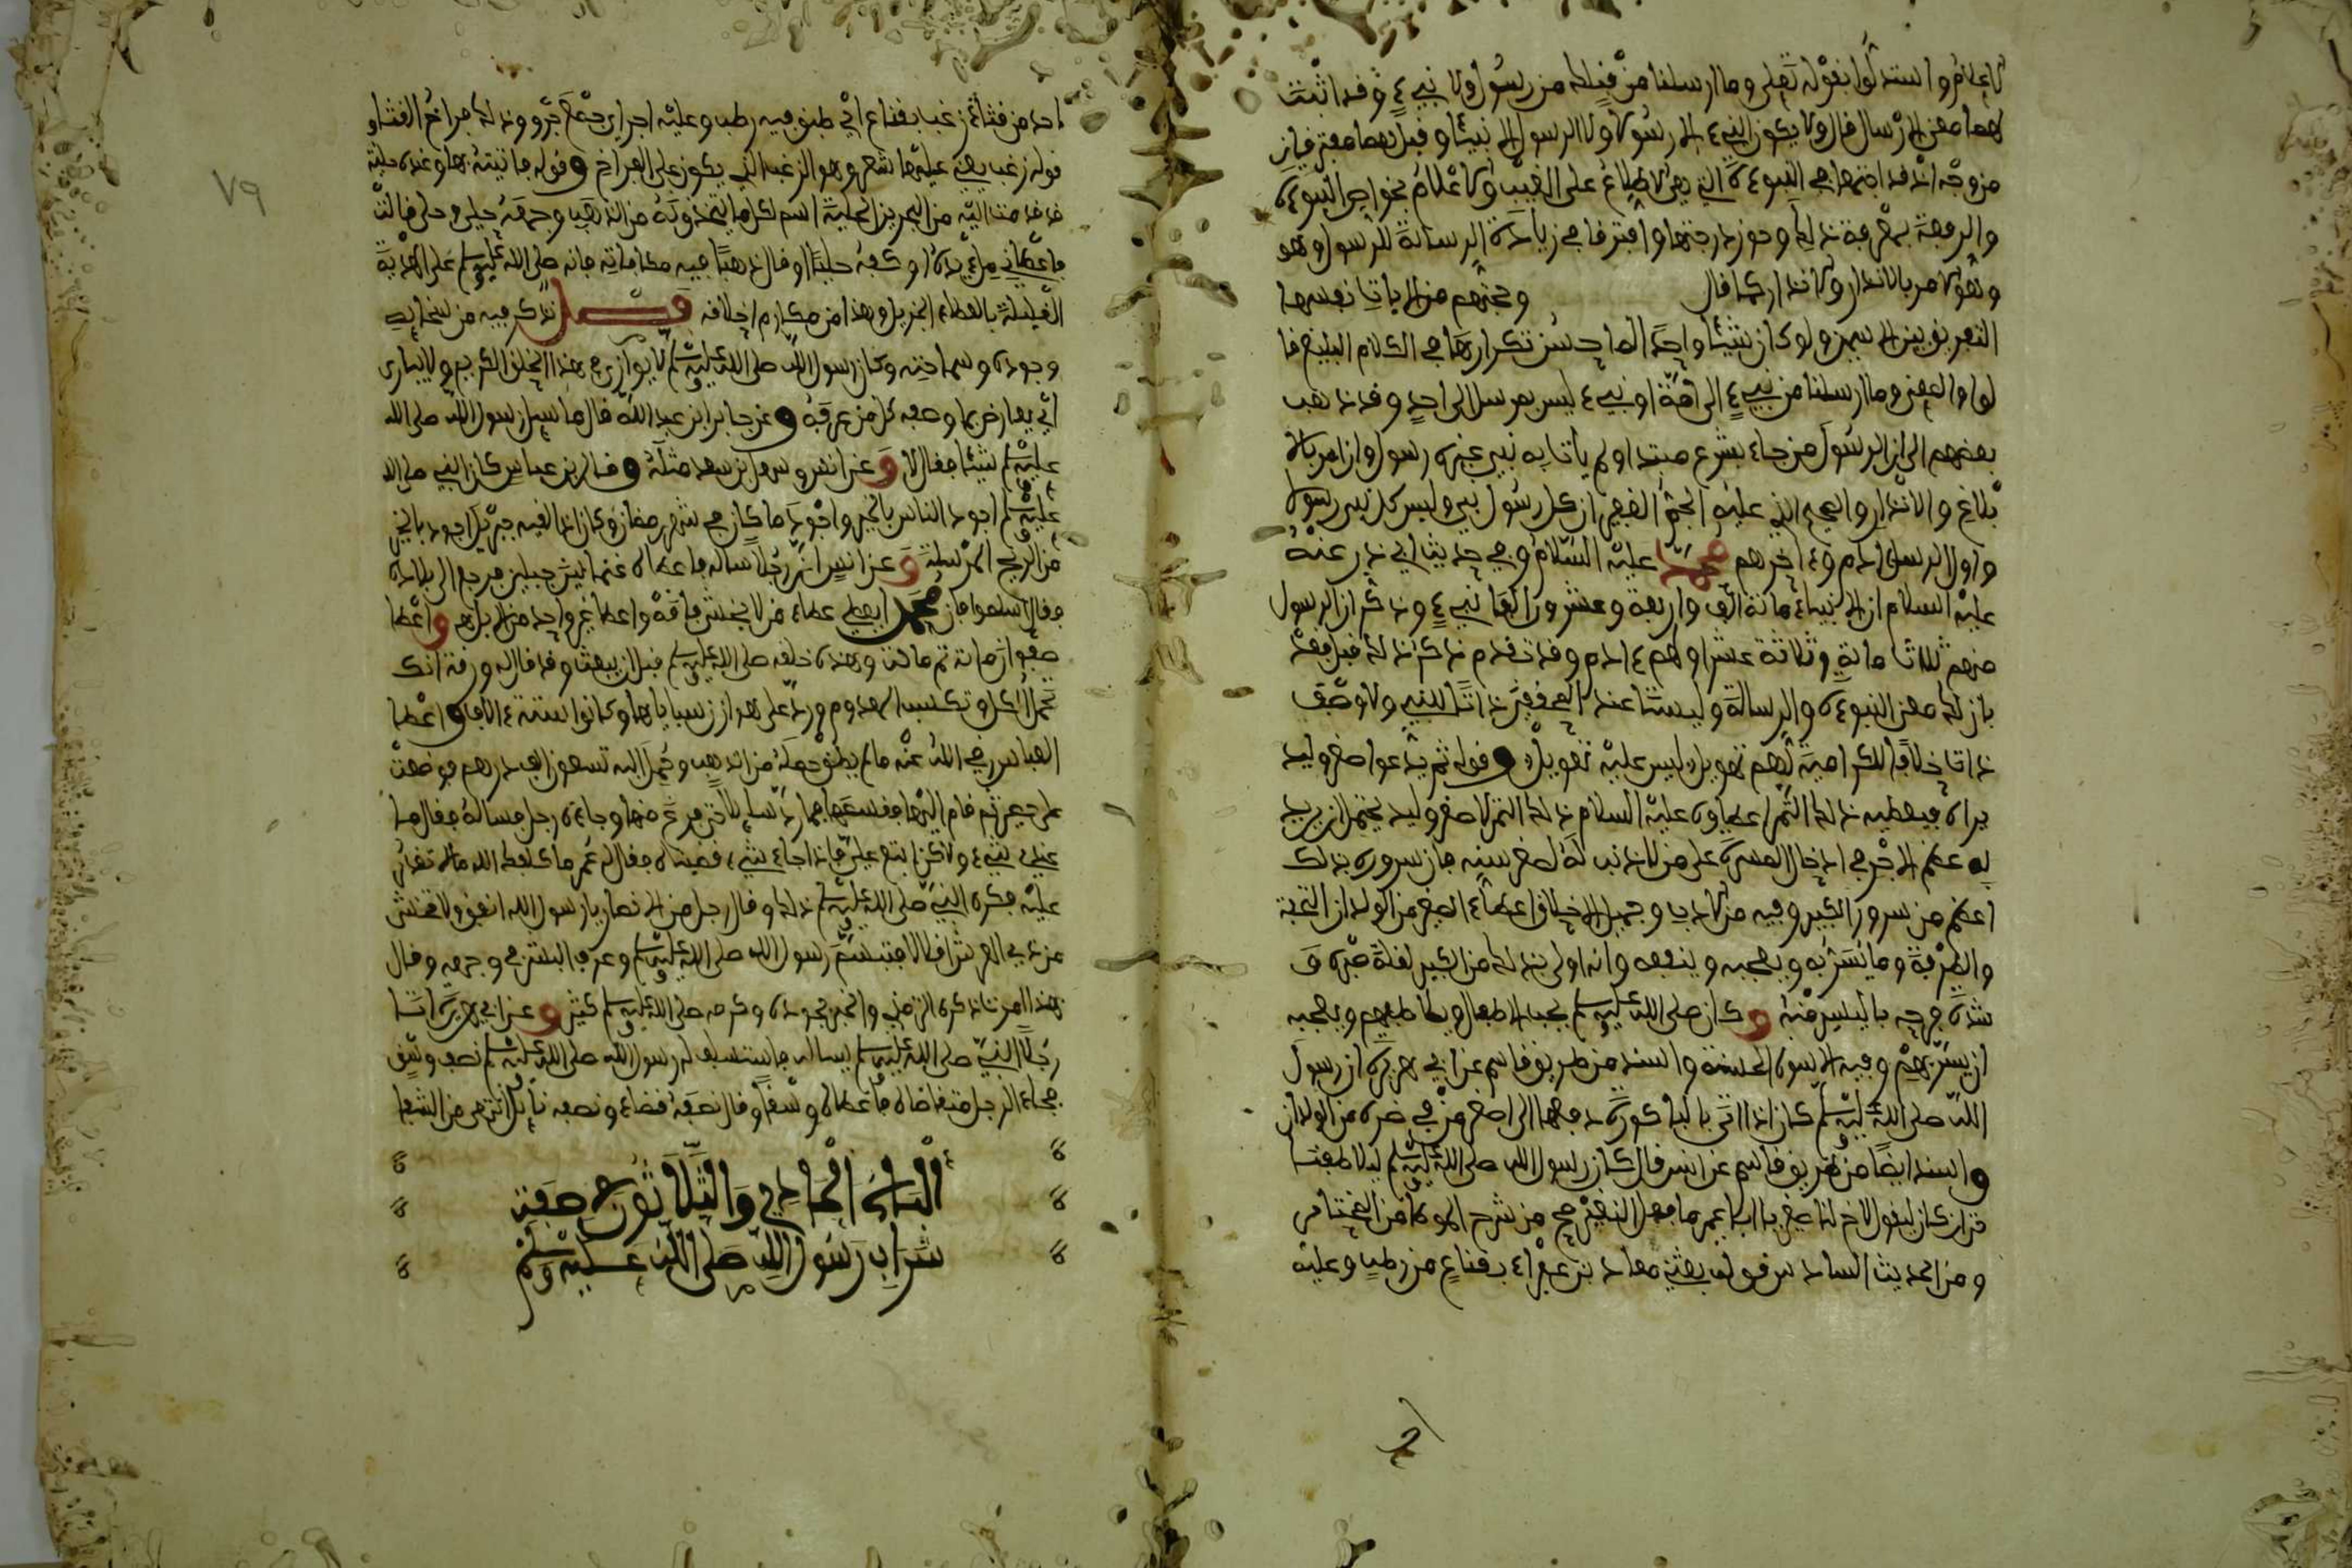 الاعلام واستدلوا بقوله تعلى وما ارسلنا من قبلك من رسول ولا نبيء وقد اثبت
لهما معن الارسال قال ولا يكون النبيء الا رسولا ولا الرسول الا نبيئا وقيل هما مفترقان
من وجه اذ قد اجتمعا في النبوءة التي هي الاطلاع على الغيب والاعلام بخواص النبوءة
والرفعة بمعرفة ذلك وحوز درجتها وافترقا في زيادة الرسالة للرسول وهو
وهو الامر بالانذار والانذار كما قال وحجتهم من الايات نفسها
التفريق بين الاسمين ولو كان شيئا واحدا لما حسن تكرارها في الكلام البليغ قا
لوا والمعنى وما ارسلنا من نبيء الى امة او نبيء ليس بمرسل الى احد وقد ذهب
بعضهم الى ان الرسول من جاء بشرع مبتدا ولم يات به نبي غيره رسول وان امر بالا
بلاغ والانذار والصحيح الذي عليه الجم الغفير ان كل رسول نبي وليس كل نبي رسولا
واول الرسل ادم وءاخرهم محمد عليه السلام وفي حديث ابي ذر عنه
عليه السلام ان الانبياء مائة الف واربعة وعشرون الف نبيء وذكر ان الرسول
منهم ثلاثا مائة وثلاثة عشر اولهم ءادم وقد تقدم ذكر ذلك قبل فقد
بان لك معنى النبوءة والرسالة وليستا عند المحققين ذاتا للنبي ولا وصف
ذات خلافا للكرامية لهم تهويل ليس عليه تعويل وقوله ثم يدعوا اصغر وليد
يراه فيعطيه ذلك الثمر اعطاوه عليه السلام ذلك الثمر لاصغر وليد يحتمل ان يريد
به عظم الاجر في ادخال المسرة على من لا ذنب له لصغر سنه فان سروره بذلك
اعظم من سرور الكبير وفيه من الاداب وجميل الاخلاق اعطاء الصغير من الولدان التحفة
والطرفة وما يسر به ويعجبه وينفعه وانه اولى بذلك من الكبير لقلة صبره و
شدة فرحه باليسير منه وكان صلى الله عليه وسلم يحب الاطفال ويلاطفهم ويعجبه
ان يسر بهم وفيه الاسوة الحسنة واسند من طريق قاسم عن ابي هريرة ان رسول
الله صلى الله عليه وسلم كان اذا اتى بالباكورة دفعها الى اصغر من في حضره من الولدان
واسند ايضا من طريق قاسم عن انس قال كان رسول الله صلى الله عليه وسلم ليلاطفنا
حتى ان كان ليقول لاخ لنا صغير يا ابا عمير ما فعل النغير صح من شرح الموطا من
ومن الحديث السادس قوله بعثني معاذ بن عفراء بقناع من رطب وعليه
اجر من قثاء زغب بقناع اي طبق فيه رطب وعليه اجر اي جمع جرو وذلك فراخ القثاء
قوله زغب يعني عليها شعر وهو الزغب الذي يكون على الفراخ وقوله فاتيته بها وعنده حلية
قد قدمت اليه من البحرين الحلية اسم لكل ما يتخذ زينة من الذهب وجمعه حلي وحلى قالت
فاعطاني ملء يده او كفه حليا او قال ذهبا فيه مكافاته فانه صلى الله عليه وسلم على الهدية
القليلة بالعطاء الجزيل وهذا من مكارم اخلاقه فصل نذكر فيه من سخائه
وجوده وسماحته وكان رسول الله صلى الله عليه وسلم لا يوازى في هذا الخلق الكريم ولا يبارى
اي يعارض بها وصفه كل من عرفه وعن جابر ابن عبد الله قال ما سيل رسول الله صلى الله
عليه وسلم شيئا فقال لا وعن انس وسهل بن سعد مثله وقال ابن عباس كان النبي صلى الله
عليه وسلم اجود الناس بالخير واجود ما كان في شهر رمضان وكان اذا لقيه جبريل اجود بالخير
من الريح المرسلة وعن انس ان رجلا ساله فاعطاه غنما بين جبلين فرجع الى بلاده
فقال اسلموا فان محمدا يعطي عطاء من لا يخشى فاقة واعطا غير واحد من الابل واعطا
صفوان مائة ثم مائة وهذه خلقه صلى الله عليه وسلم قبل ان يبعث وقد قال له ورقة انك
تحمل الكل وتكسب المعدوم ورد على هوازن سباياها وكانوا ستة ءالاف واعطا
العباس رضي الله عنه ما لم يطق حمله من الذهب وحمل اليه تسعون الف درهم فوضعت
على حصير ثم قام اليها فقسمها فما رد سايلا حتى فرغ منها وجاءه رجل فساله فقال ما
عندي شيء ولاكن ابتع علي فاذا جاء شيء قضيناه فقال له عمر ما كلفك الله ما لا تقدر
عليه فكره النبي صلى الله عليه وسلم ذلك وقال رجل من الانصار يا رسول الله انفق ولا تخش
من ذي العرش اقلالا فتبسم رسول الله صلى الله عليه وسلم وعرف البشر في وجهه وقال
بهذا امرت ذكره الترمذي والخبر بجوده وكرمه صلى الله عليه وسلم كثير وعن ابي هريرة اتا
رجل النبي صلى الله عليه وسلم يساله فاستسلف له رسول الله صلى الله عليه وسلم نصف وسق
فجاء الرجل متقاضاه فاعطاه وسقا وقال نصفه قضاء ونصفه نايل انتهى من الشفا
الباب الحادي والثلاثون في صفة
شراب رسول الله صلى الله عليه وسلم
٧٩